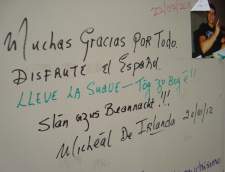 Muchas Gracias POR TODO.
DISFRUTE el Español
LLEVE LA SUAVE - Tóg go bog é!!
Slán agus Beannacht!!!
Micheál De Irlanda 20/01/12